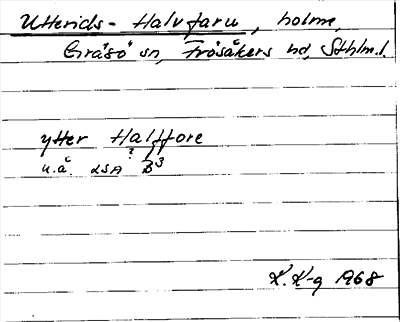 Ytterids- Halvfaru, holme,
Gräsö sn, Frösåkers hd, Sthlm.l.
ytter Halffore
u.å. LSA B3
?
K. K-g 1968